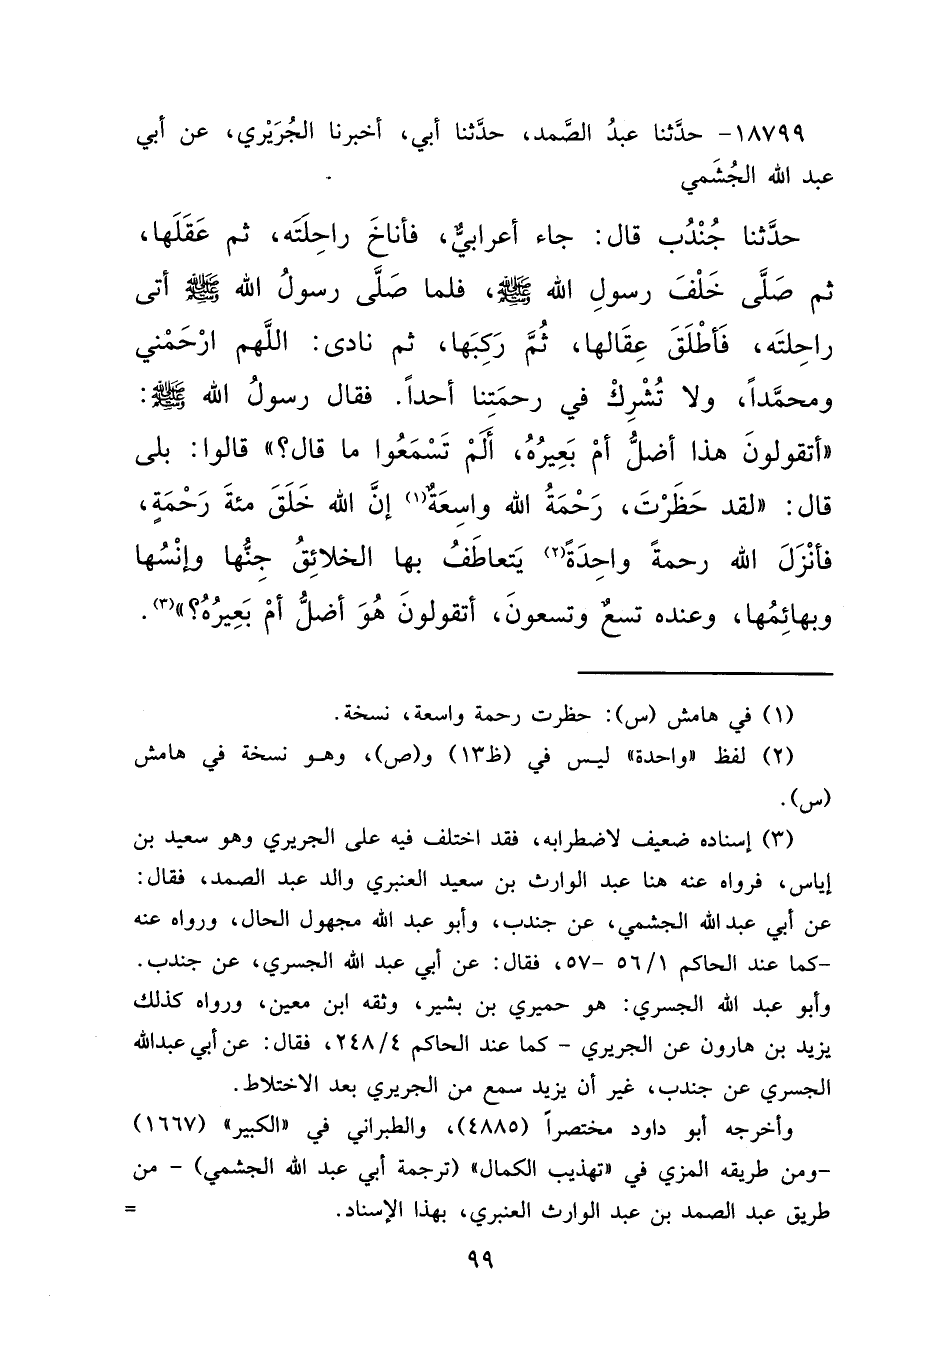 ١٨٧٩٩- حدَّثنا عبدُ الصَّمد، حدَّثنا أبي، أخبرنا الجُرَيْري، عن أبي
عبد الله الجُشَمي
حدَّثنا جُنْدُب قال: جاء أعرابيٌّ، فأناخَ راحِلَتَه، ثم عَقَلَها،
ثم صَلَّى خَلْفَ رسولِ الله ﷺ، فلما صَلَّى رسولُ الله ﷺ أتى
راحِلتَه، فَأَطْلَقَ عِقَالها، ثُمَّ رَكِبَها، ثم نادى: اللَّهم ارْحَمْني
ومحمَّداً، ولا تُشْرِكْ في رحمَتِنا أحداً. فقال رسولُ الله ﷺ:
«أتقولونَ هذا أضلُّ أمْ بَعِيرُهُ، أَلَمْ تَسْمَعُوا ما قال؟» قالوا: بلى
قال: «لقد حَظَرْتَ، رَحْمَةُ الله واسِعَةٌ(١) إنَّ الله خَلَقَ مئةَ رَحْمَةٍ،
فأنْزَلَ الله رحمةً واحِدَةً(٢) يَتعاطَفُ بها الخلائِقُ جِنُّها وإنْسُها
وبهائِمُها، وعنده تسعٌ وتسعونَ، أتقولونَ هُوَ أضلُّ أمْ بَعِيرُهُ؟»(٣).
(١) في هامش (س): حظرت رحمة واسعة، نسخة.
(٢) لفظ «واحدة» ليس في (ظ١٣) و(ص)، وهو نسخة في هامش
(س).
(٣) إسناده ضعيف لاضطرابه، فقد اختلف فيه على الجريري وهو سعيد بن
إياس، فرواه عنه هنا عبد الوارث بن سعيد العنبري والد عبد الصمد، فقال:
عن أبي عبد الله الجشمي، عن جندب، وأبو عبد الله مجهول الحال، ورواه عنه
-كما عند الحاكم ٥٦/١ -٥٧، فقال: عن أبي عبد الله الجسري، عن جندب.
وأبو عبد الله الجسري: هو حميري بن بشير، وثقه ابن معين، ورواه كذلك
يزيد بن هارون عن الجريري - كما عند الحاكم ٢٤٨/٤، فقال: عن أبي عبدالله
الجسري عن جندب، غير أن يزيد سمع من الجريري بعد الاختلاط.
وأخرجه أبو داود مختصراً (٤٨٨٥)، والطبراني في «الكبير» (١٦٦٧)
-ومن طريقه المزي في «تهذيب الكمال» (ترجمة أبي عبد الله الجشمي) - من
طريق عبد الصمد بن عبد الوارث العنبري، بهذا الإسناد. =
٩٩